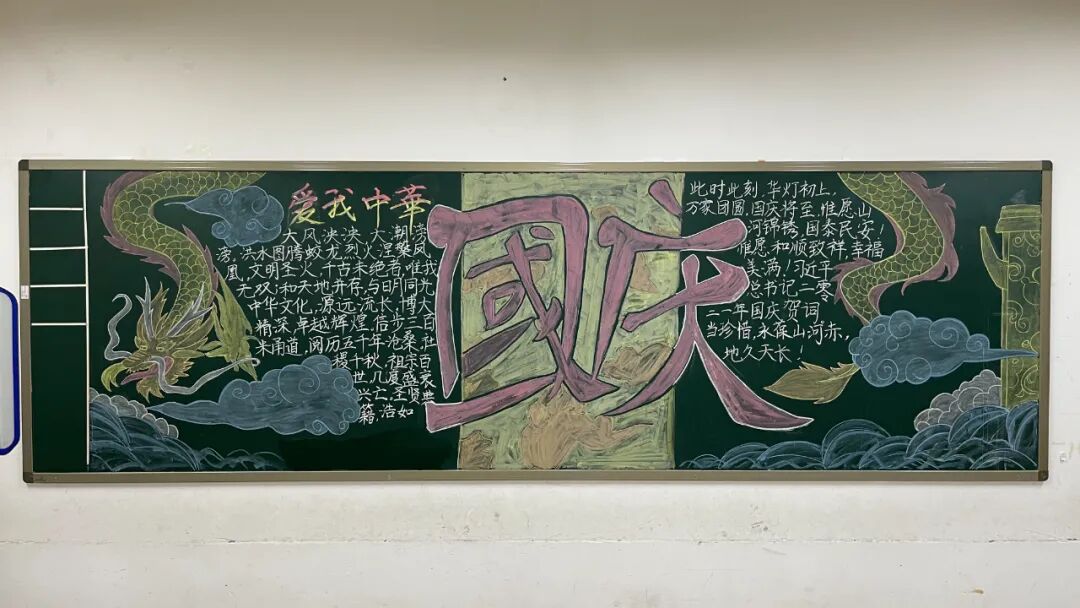 爱我中華
大风泱泱,大潮滂
滂,洪水图腾蛟龙,烈火涅槃凤
凰,文明圣火,千古未绝者,唯我
无双;和天地并存,与日月同光
中华文化,源远流长,博大
精深,卓越辉煌,信步三百
米甬道,阅历五千年沧桑.社
稷千秋,祖宗百
世,几度盛衰
兴亡,圣贤典
籍,浩如
國庆
此时此刻,华灯初上,
万家团圆,国庆将至,惟愿山
河锦锈,国泰民安!
惟愿和顺致祥,幸福
美满!习近平
总书记二零
二一年国庆贺词
当珍惜,永保山河赤,
地久天长!